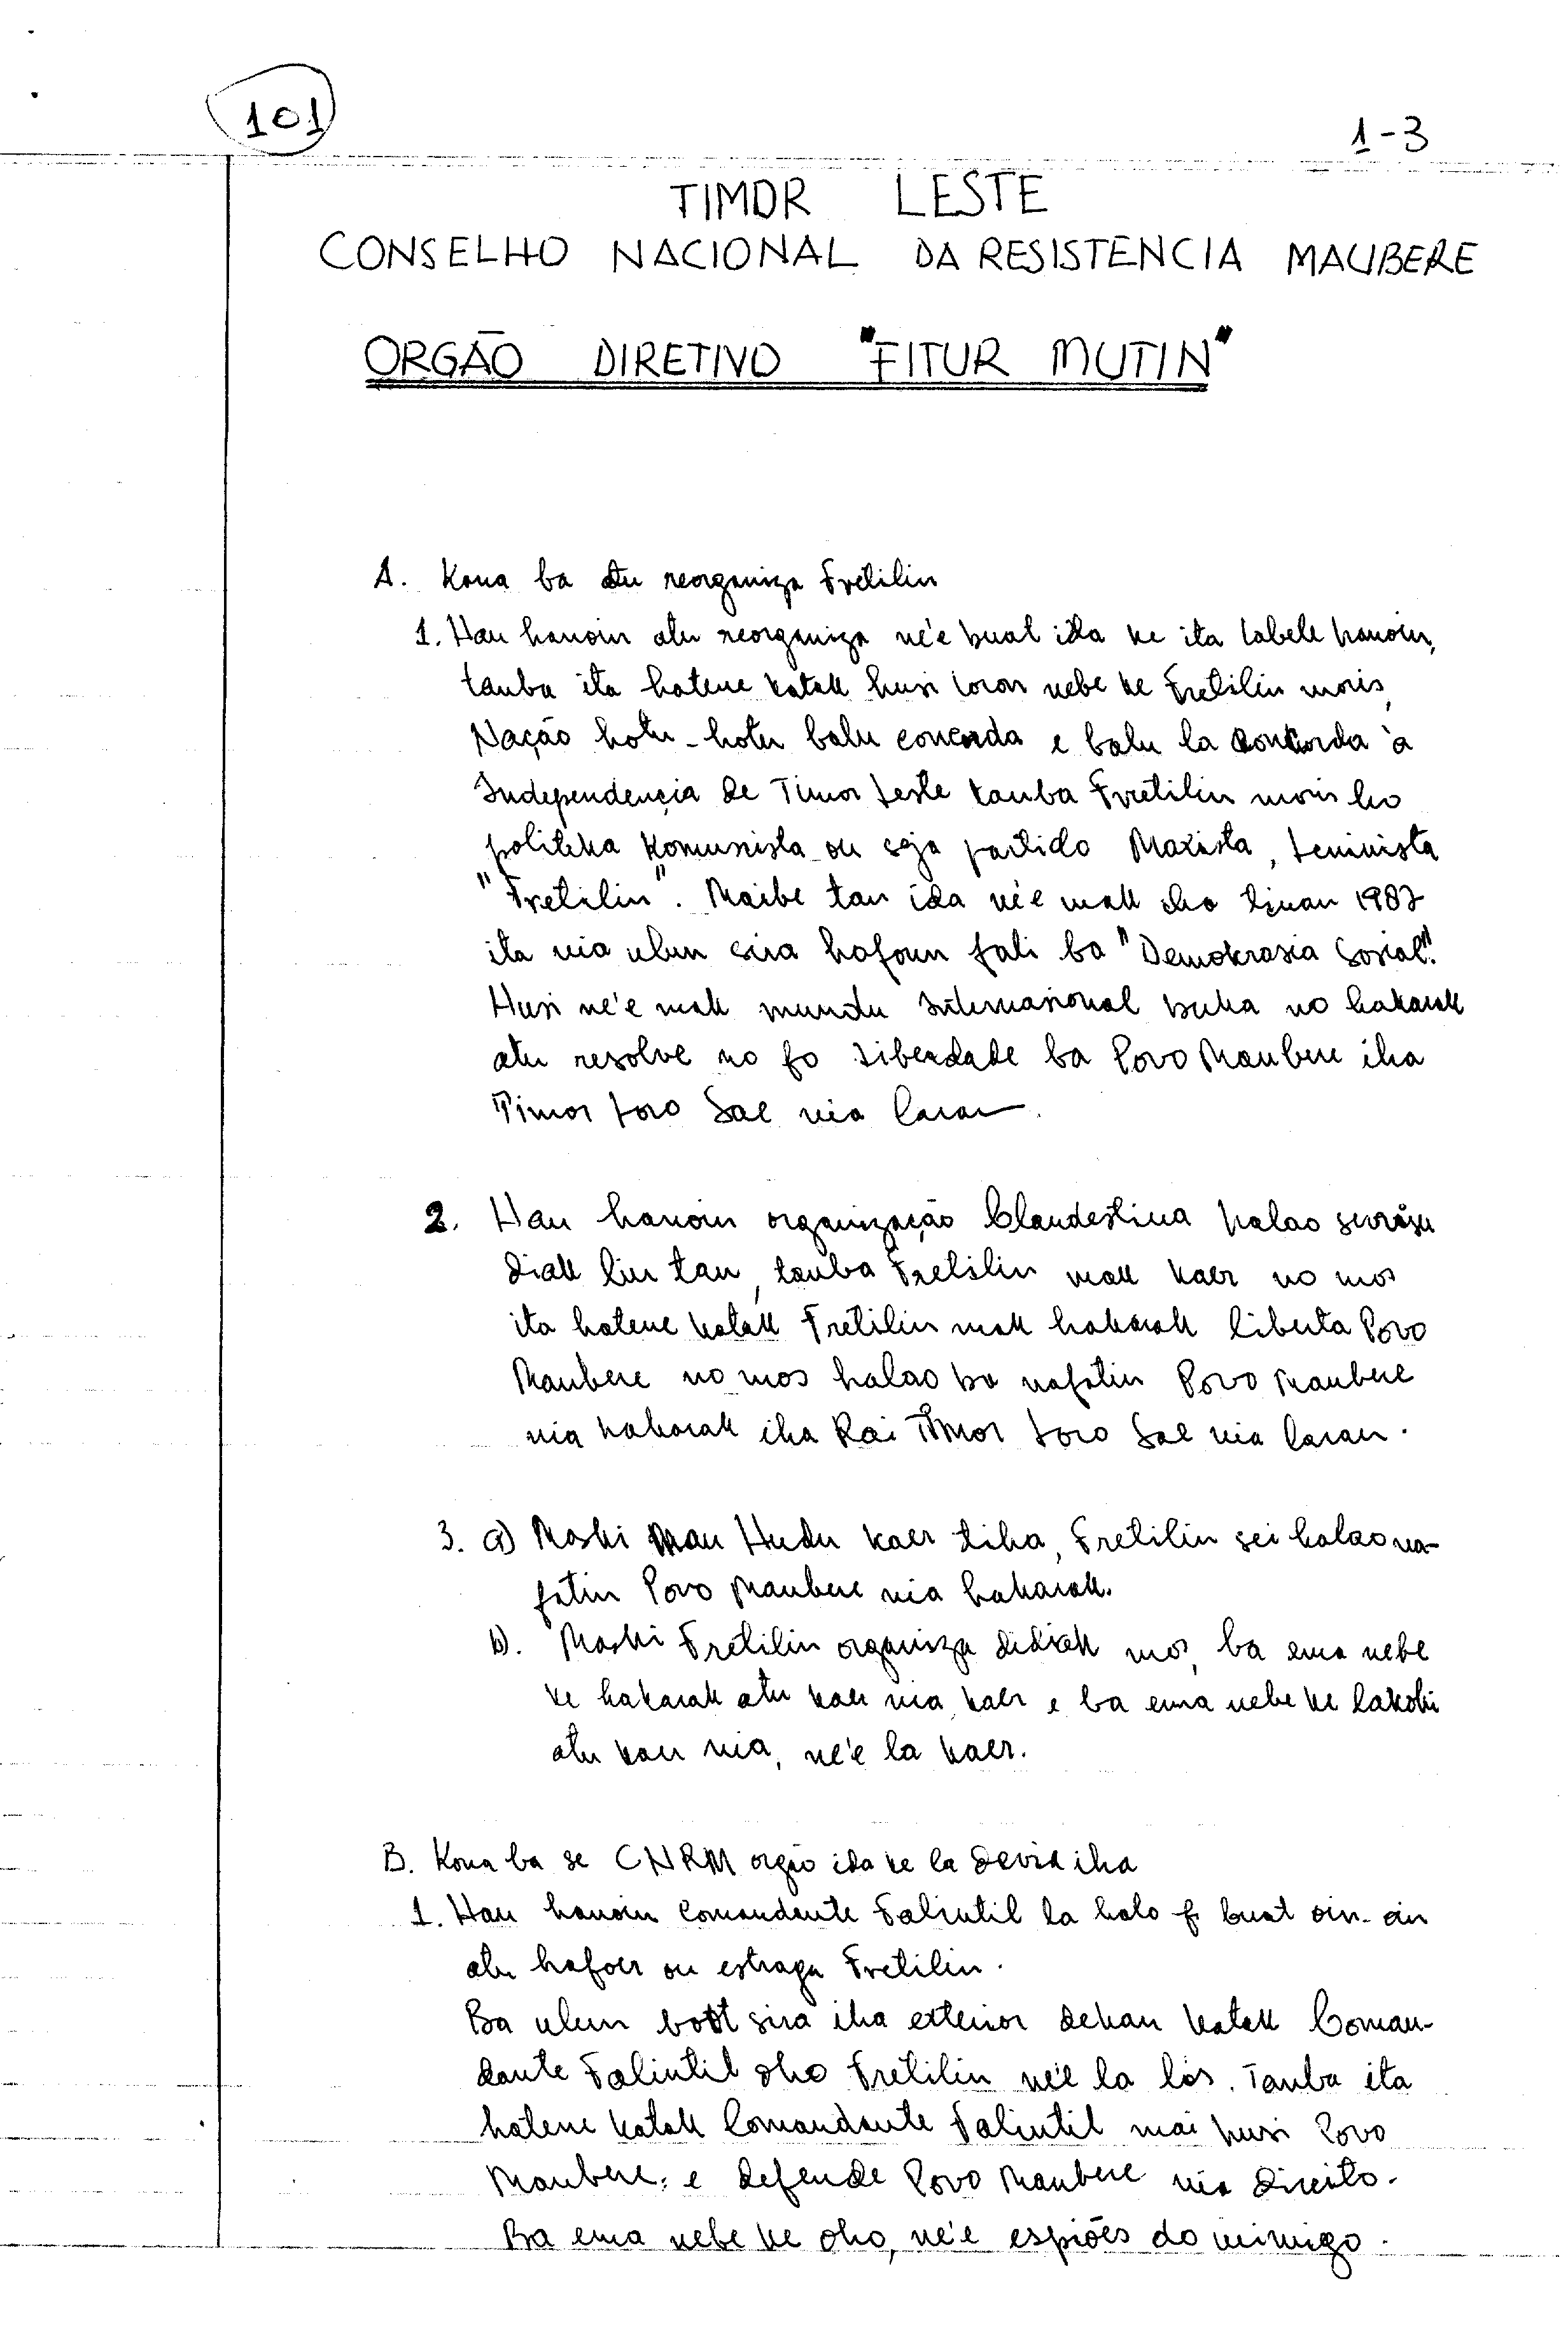 101
1-3
TIMOR LESTE
CONSELHO NACIONAL DA RESISTENCIA MAUBERE
ORGÃO DIRETIVO "FITUR MUTIN"
A. Kona ba atu reorganiza Fretilin
1. Hau hanoin atu reorganiza ne'e buat ida ke ita labele hanoin,
tanba ita hatene katak husi loron nebe ke Fretilin moris,
Nação hotu-hotu balu concorda e balu la concorda à
Independencia de Timor Leste tanba Fretilin moris ho
politika komunista ou seja partido Maxista, Leninista
"Fretilin". Maibe tan ida ne'e mak iha tinan 1987
ita nia ulun sira hafoun fali ba "Demokrasia Sosial".
Husi ne'e mak mundu Internasional buka no hakarak
atu resolve no fo Liberdade ba Povo Maubere iha
Timor Loro Sae nia laran.
2. Hau hanoin organização Clandestina halao servisu
diak liu tan, tanba Fretilin mak kaer no mos
ita hatene katak Fretilin mak hakarak liberta Povo
Maubere no mos halao ba nafatin Povo Maubere
nia hakarak iha Rai Timor Loro Sae nia laran.
3. a) Maski Mau Hudu kaer tiha, Fretilin sei halao na-
fatin Povo Maubere nia hakarak.
b). Maski Fretilin organiza didiak mos, ba ema nebe
ke hakarak atu kaer nia kaer e ba ema nebe ke lakohi
atu kaer nia, ne'e la kaer.
B. Kona ba se CNRM orgão ida ke la devia iha
1. Hau hanoin Comandante Falintil la halo buat oin-oin
atu hafoer ou estraga Fretilin.
Ba ulun boot sira iha exterior dehan katak Coman-
dante Falintil oho Fretilin ne'e la lós. Tanba ita
hatene katak Comandante Falintil mai husi Povo
Maubere, e defende Povo Maubere nia direito.
Ba ema nebe ke oho, ne'e espiões do inimigo.